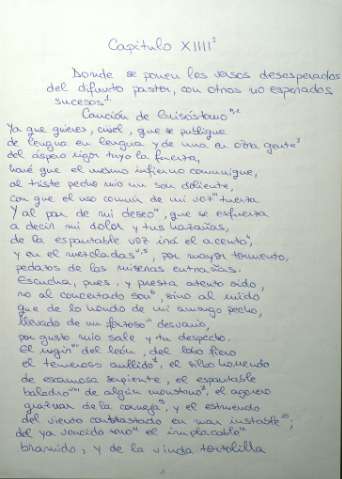 Capítulo XIIII¹
Donde se ponen los versos desesperados
del difunto pastor, con otros no esperados
sucesos¹
Canción de Grisóstomo
Ya que quieres, cruel, que se publique
de lengua en lengua y de una en otra gente
del áspero rigor tuyo la fuerza,
haré que el mesmo infierno comunique,
al triste pecho mío un son doliente,
con que el uso común de mi voz tuerza
Y al par de mi deseo, que se esfuerza
a decir mi dolor y tus hazañas,
de la espantable voz irá el acento,
y en él mezcladas, por mayor tormento,
pedazos de las míseras entrañas.
Escucha, pues, y presta atento oído,
no al concertado son, sino al ruido
que de lo hondo de mi amargo pecho,
llevado de un forzoso desvarío,
por gusto mío sale y tu despecho.
El rugir del león, del lobo fiero
el temeroso aullido, el silbo horrendo
de escamosa serpiente, el espantable
baladro de algún monstruo, el agorero
graznar de la corneja, y el estruendo
del viento contrastado en mar instable;
del ya vencido toro el implacable
bramido, y de la viuda tortolilla